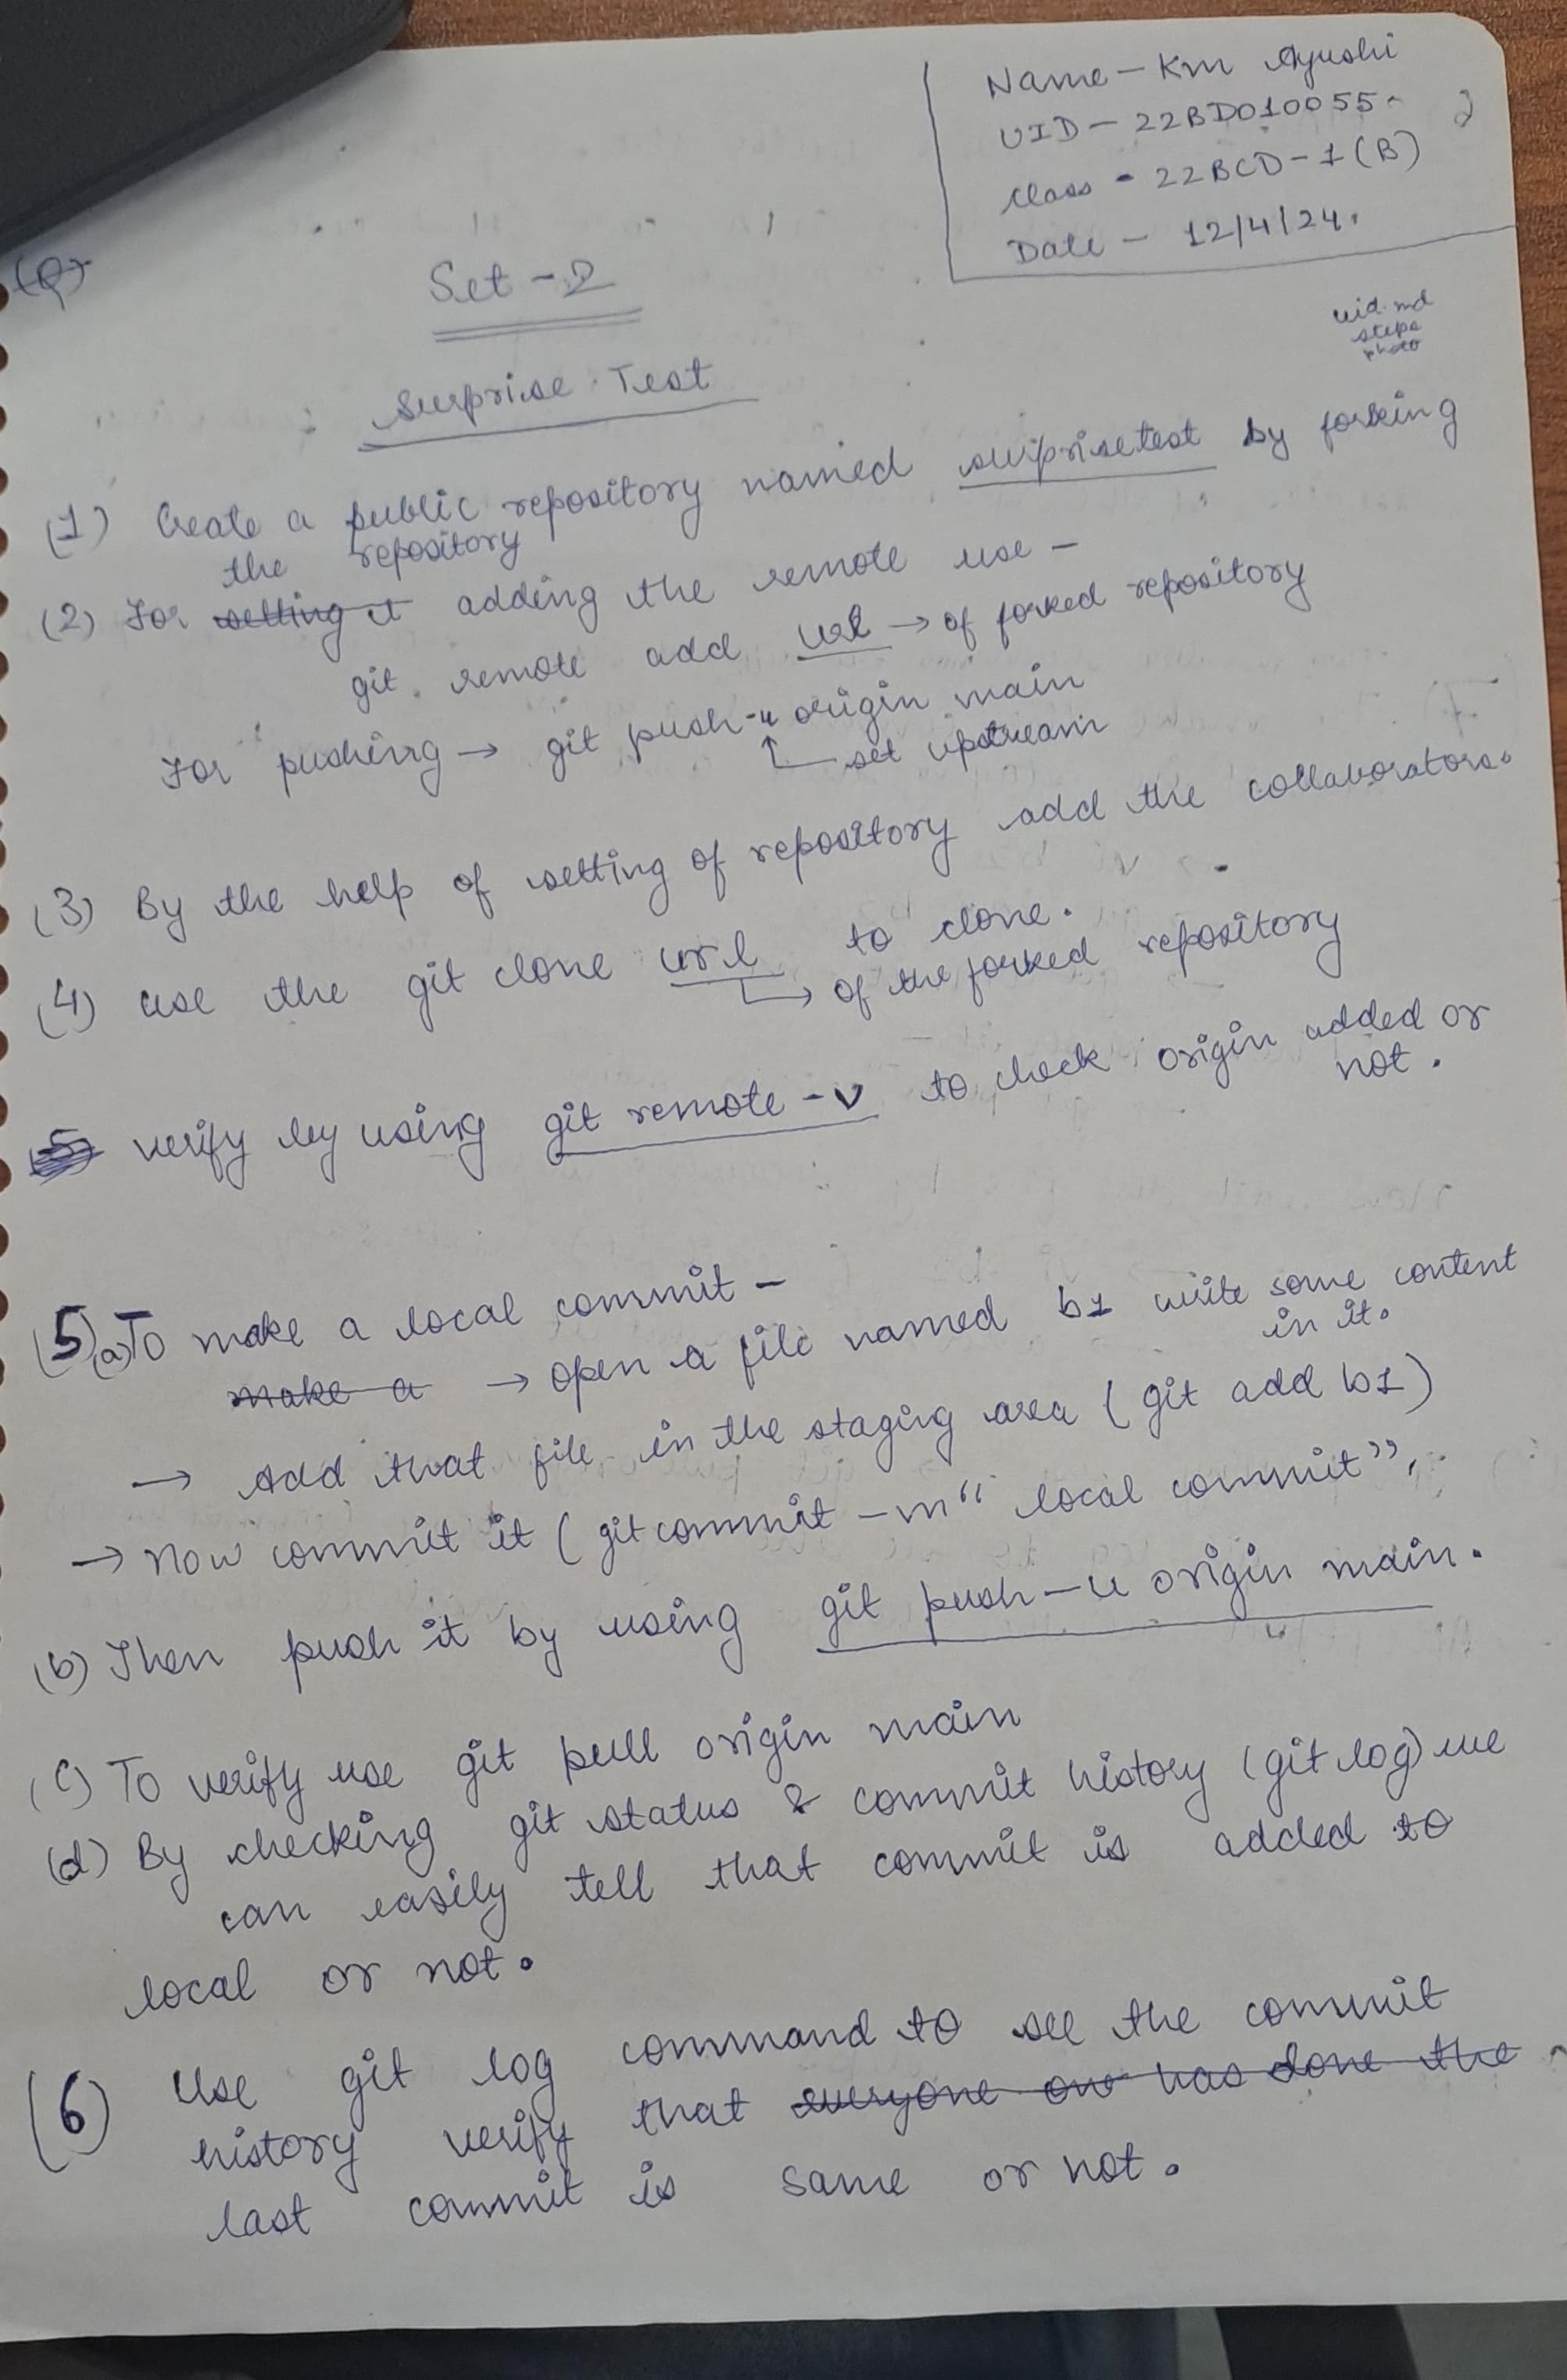 Name - Km Ayushi
UID - 22BD010055
Class - 22BCD-1(B)
Date - 12/4/24.
(Q)
Set - 2
uid.md
steps
photo
Surprise Test
(1) Create a public repository named surprisetest by forking
the repository
(2) For setting it adding the remote use -
git remote add url → of forked repository
For pushing → git push -u origin main
set upstream
(3) By the help of setting of repository add the collaborators.
(4) use the git clone url to clone.
of the forked repository
5 verify by using git remote -v to check origin added or
not.
(5)(a) To make a local commit -
make a → open a file named b1 write some content
in it.
→ Add that file in the staging area (git add b1)
→ Now commit it (git commit -m "local commit",
(b) Then push it by using git push -u origin main.
(c) To verify use git pull origin main
(d) By checking git status & commit history (git log) we
can easily tell that commit is added to
local or not.
(6) Use git log command to see the commit
history verify that everyone has done the
last commit is same or not.